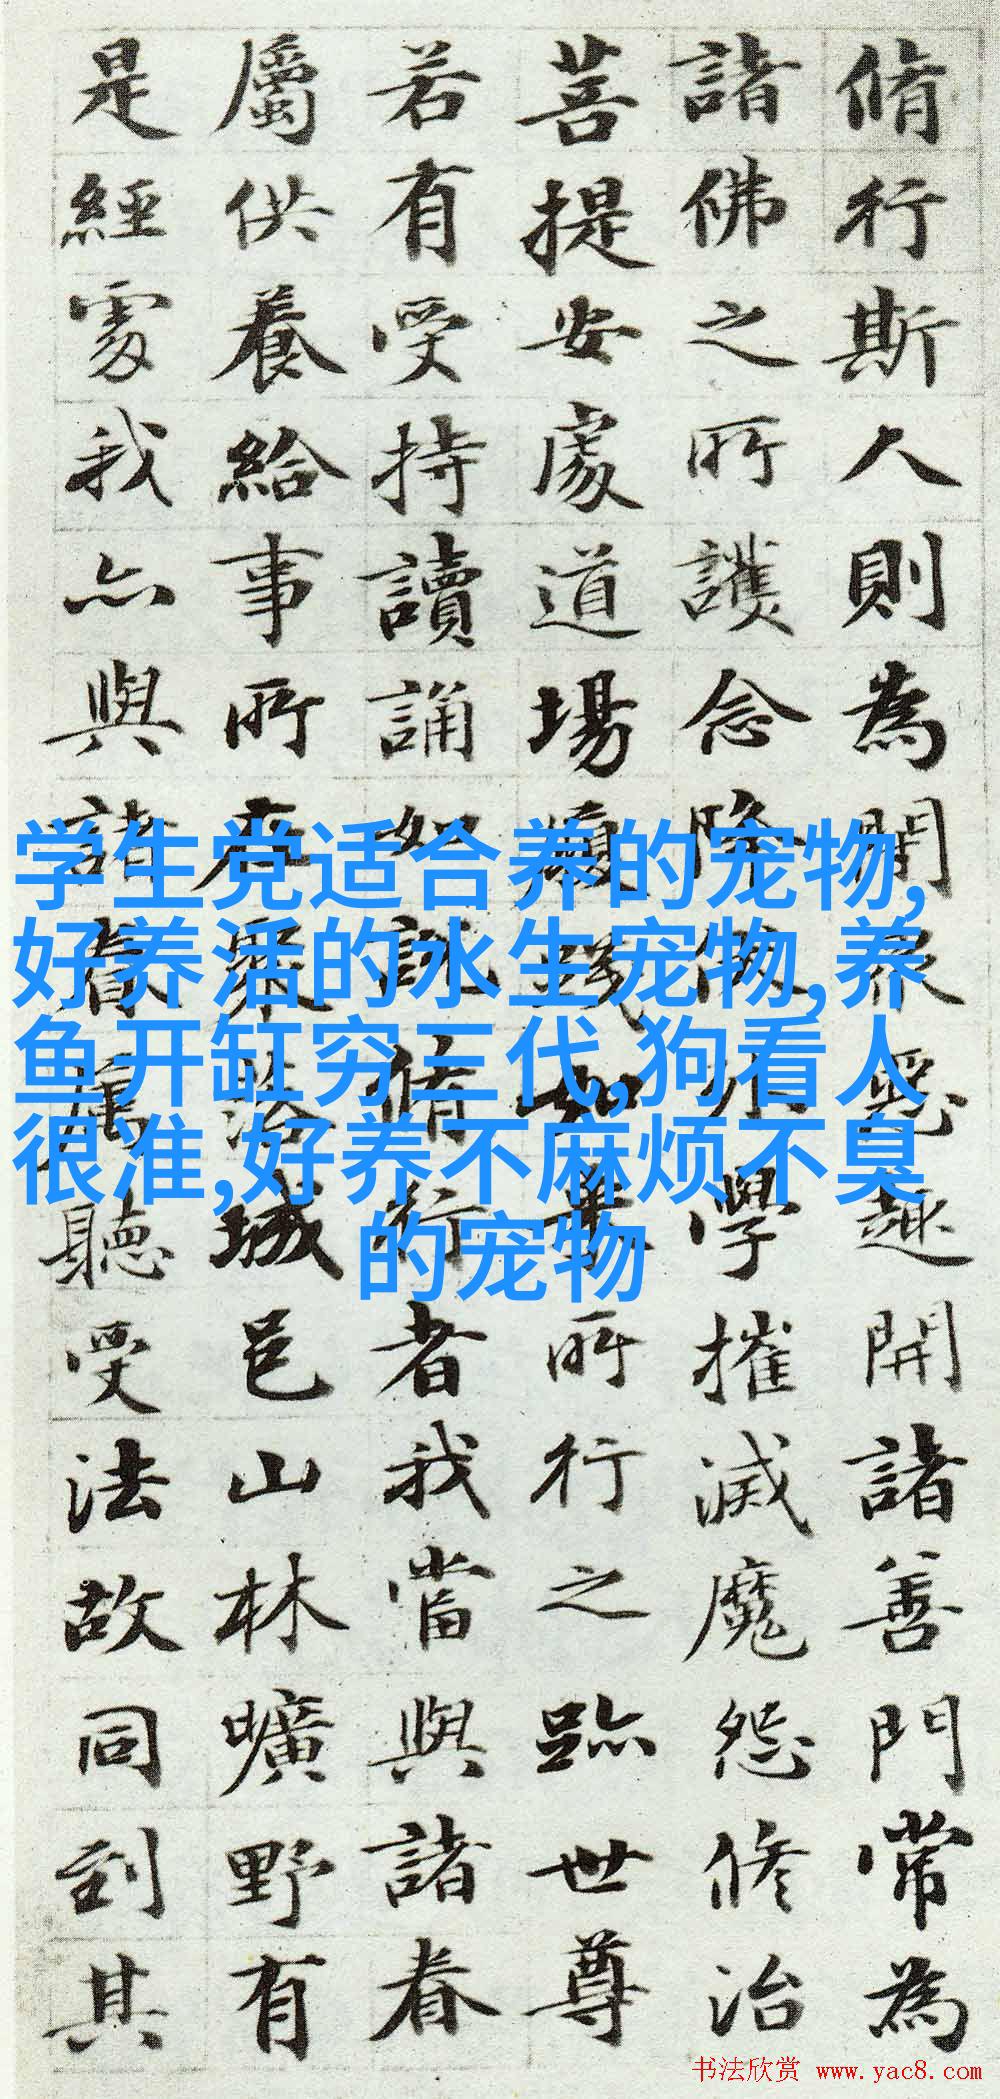 脩行斯人則為閇眾惡趣開諸善門常為
諸佛之所護念降伏外學摧滅魔怨脩治
菩提安處道場履踐如來所行之跡世尊
若有受持讀誦如說脩行者我當與諸眷
屬供養給事所在聚落城邑山林曠野有
是經處我亦與諸眷屬聽受法故同到其
学生党适合养的宠物,
好养活的水生宠物,养
鱼开缸穷三代,狗看人
很准,好养不麻烦不臭
的宠物
书法欣赏 www.yac8.com